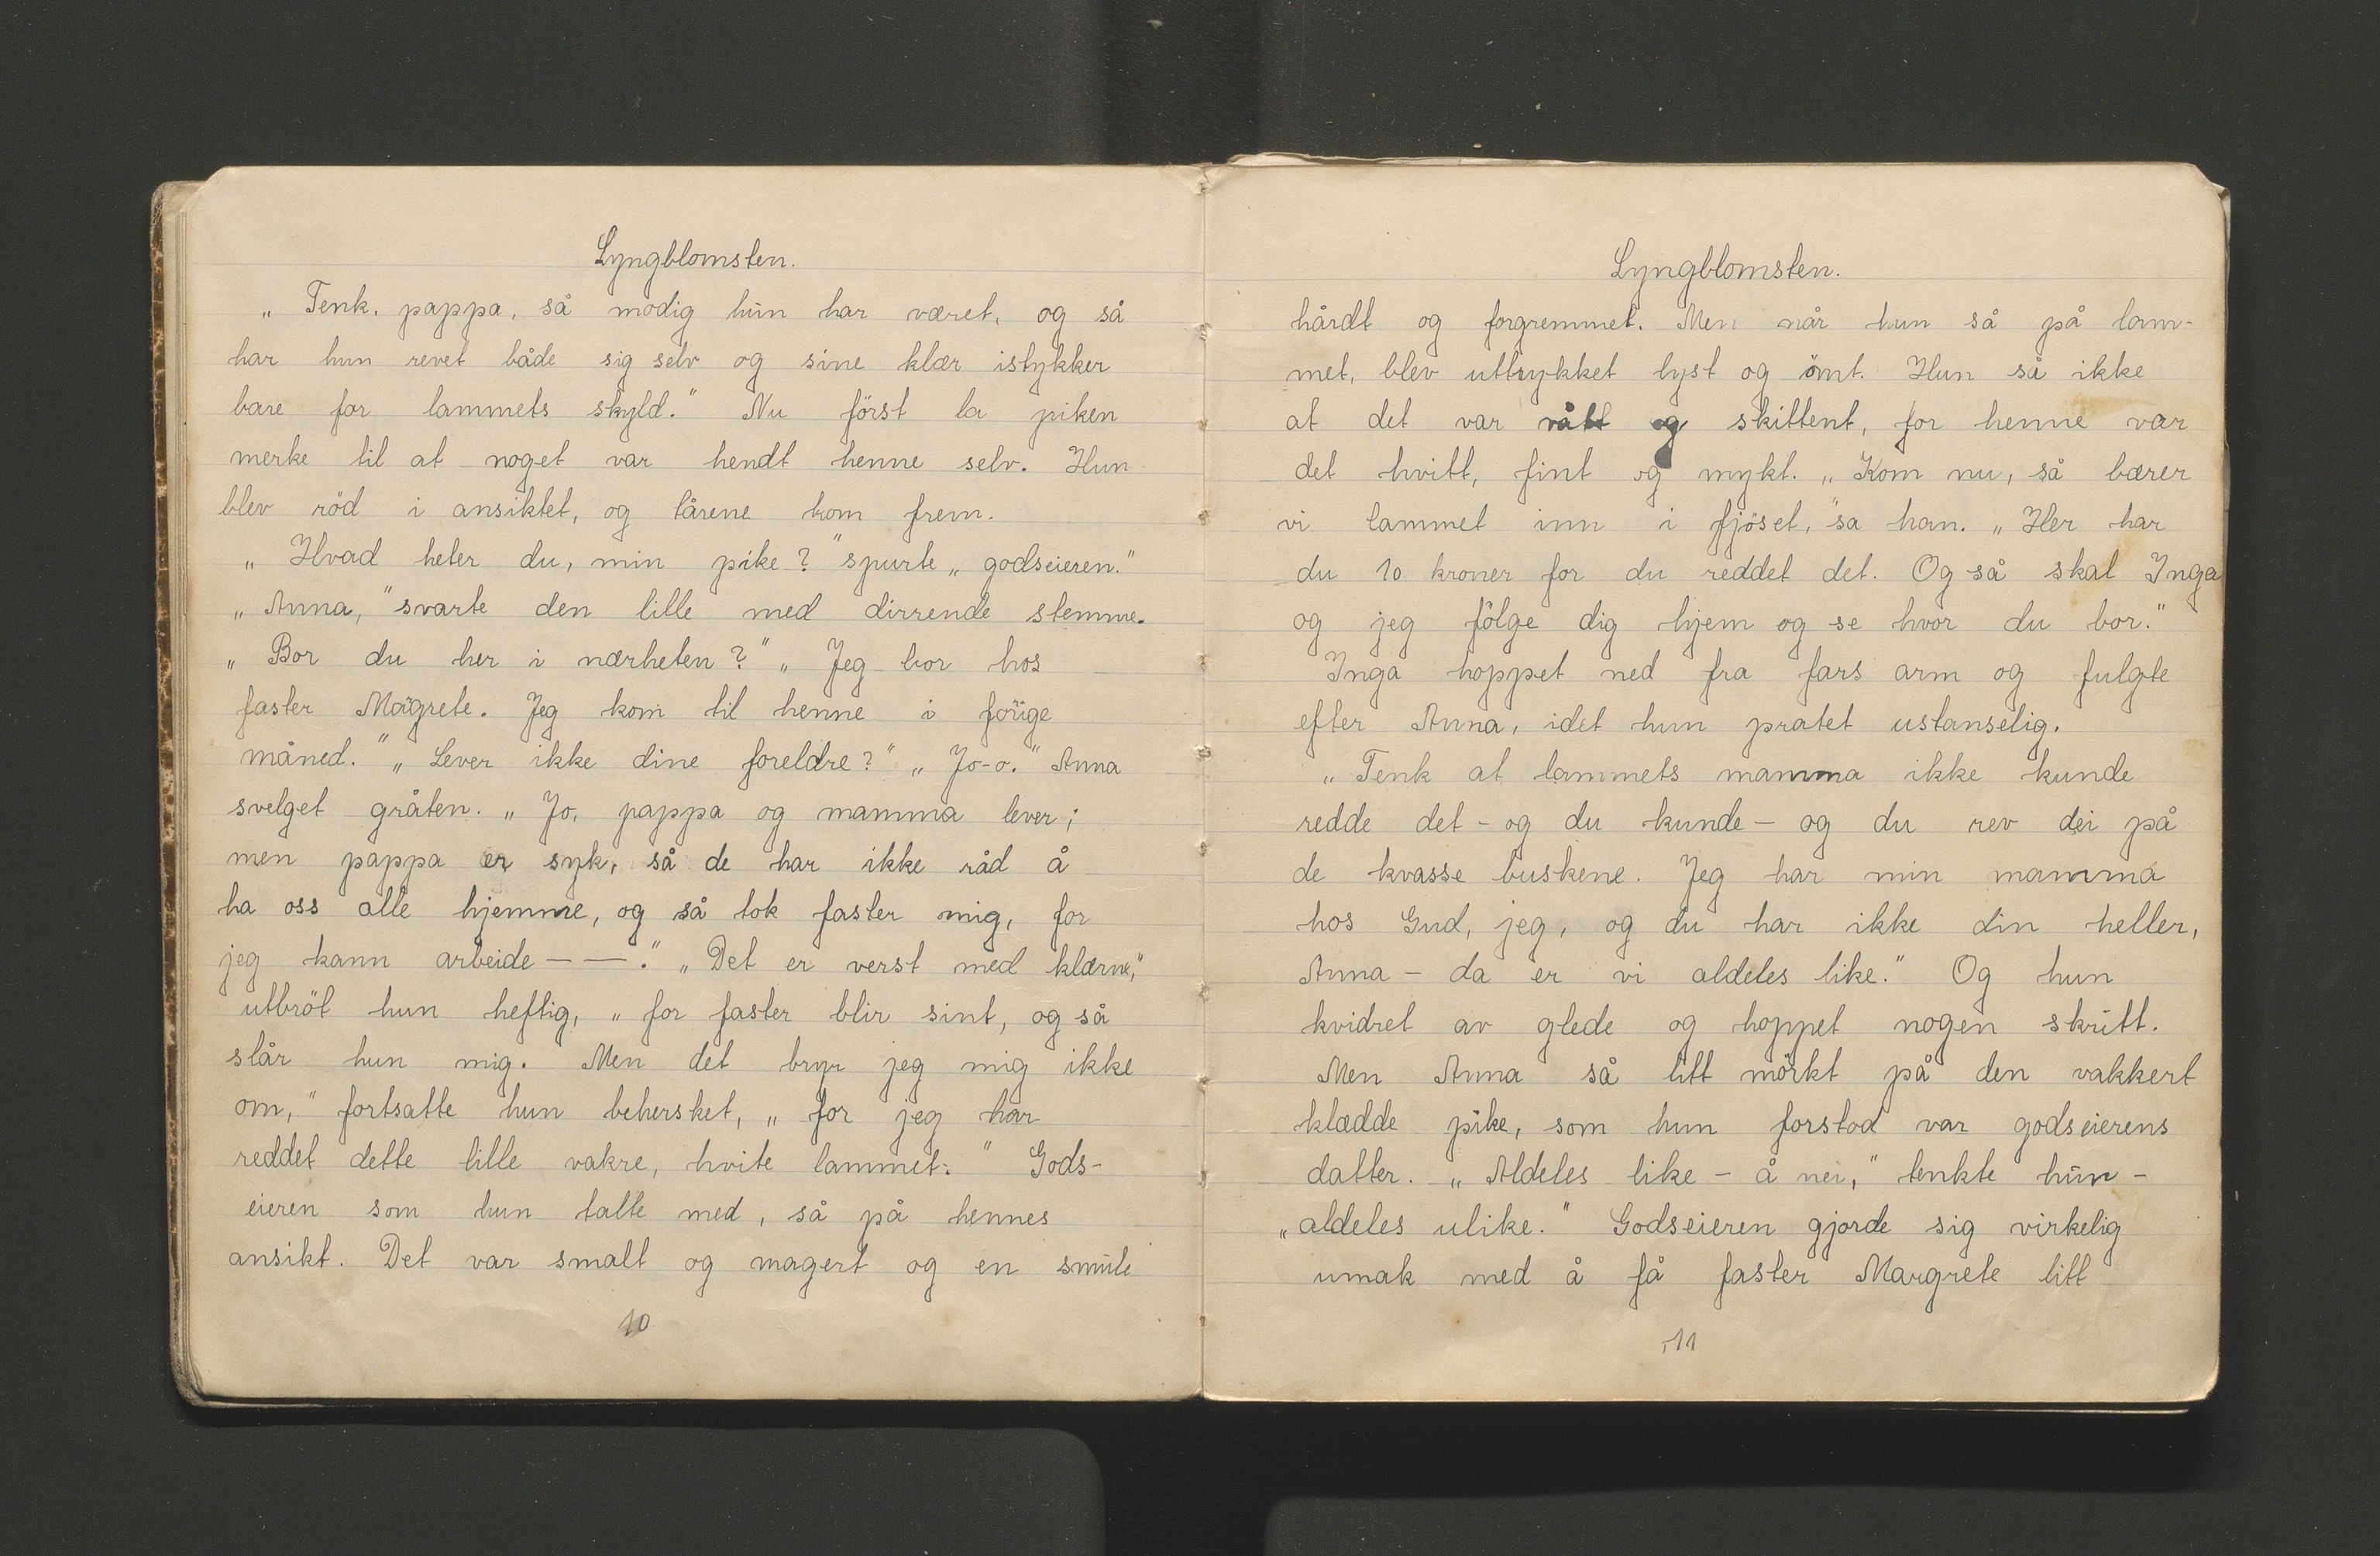 Lyngblomsten.
„ Tenk, pappa, så modig hun har været, og så
har hun revet både sig selv og sine klær istykker
bare for lammets skyld." Nu först la piken
merke til at noget var hendt henne selv. Hun
blev röd i ansiktet, og tårene kom frem.
„ Hvad heter du, min pike?" spurte „ godseieren."
„ Anna," svarte den lille med dirrende stemme.
„ Bor du her i nærheten?" „ Jeg bor hos
faster Magrete. Jeg kom til henne i forige
måned." „ Lever ikke dine foreldre?" „ Jo-o." Anna
svelget gråten. „ Jo, pappa og mamma lever;
men pappa er syk, så de har ikke råd å
ha oss alle hjemme, og så tok faster mig, for
jeg kann arbeide — —." „ Det er verst med klærne,"
utbröt hun heftig, „ for faster blir sint, og så
slår hun mig. Men det bryr jeg mig ikke
om," fortsatte hun behersket, „ for jeg har
reddet dette lille vakre, hvite lammet." Gods-
eieren som hun talte med, så på hennes
ansikt. Det var smalt og magert og en smule
10
Lyngblomsten.
hårdt og forgremmet. Men når hun så på lam-
met, blev uttrykket lyst og ömt. Hun så ikke
at det var vått og skittent, for henne var
det hvitt, fint og mykt. „ Kom nu, så bærer
vi lammet inn i fjöset," sa han. „ Her har
du 10 kroner for du reddet det. Og så skal Inga
og jeg fölge dig hjem og se hvor du bor."
Inga hoppet ned fra fars arm og fulgte
efter Anna, idet hun pratet ustanselig.
„ Tenk at lammets mamma ikke kunde
redde det - og du kunde - og du rev dei på
de kvasse buskene. Jeg har min mamma
hos Gud, jeg, og du har ikke din heller,
Anna - da er vi aldeles like." Og hun
kvidret av glede og hoppet nogen skritt.
Men Anna så litt mörkt på den vakkert
klædde pike, som hun forstod var godseierens
datter. „ Aldeles like - å nei," tenkte hun -
„ aldeles ulike." Godseieren gjorde sig virkelig
umak med å få faster Margrete litt
11